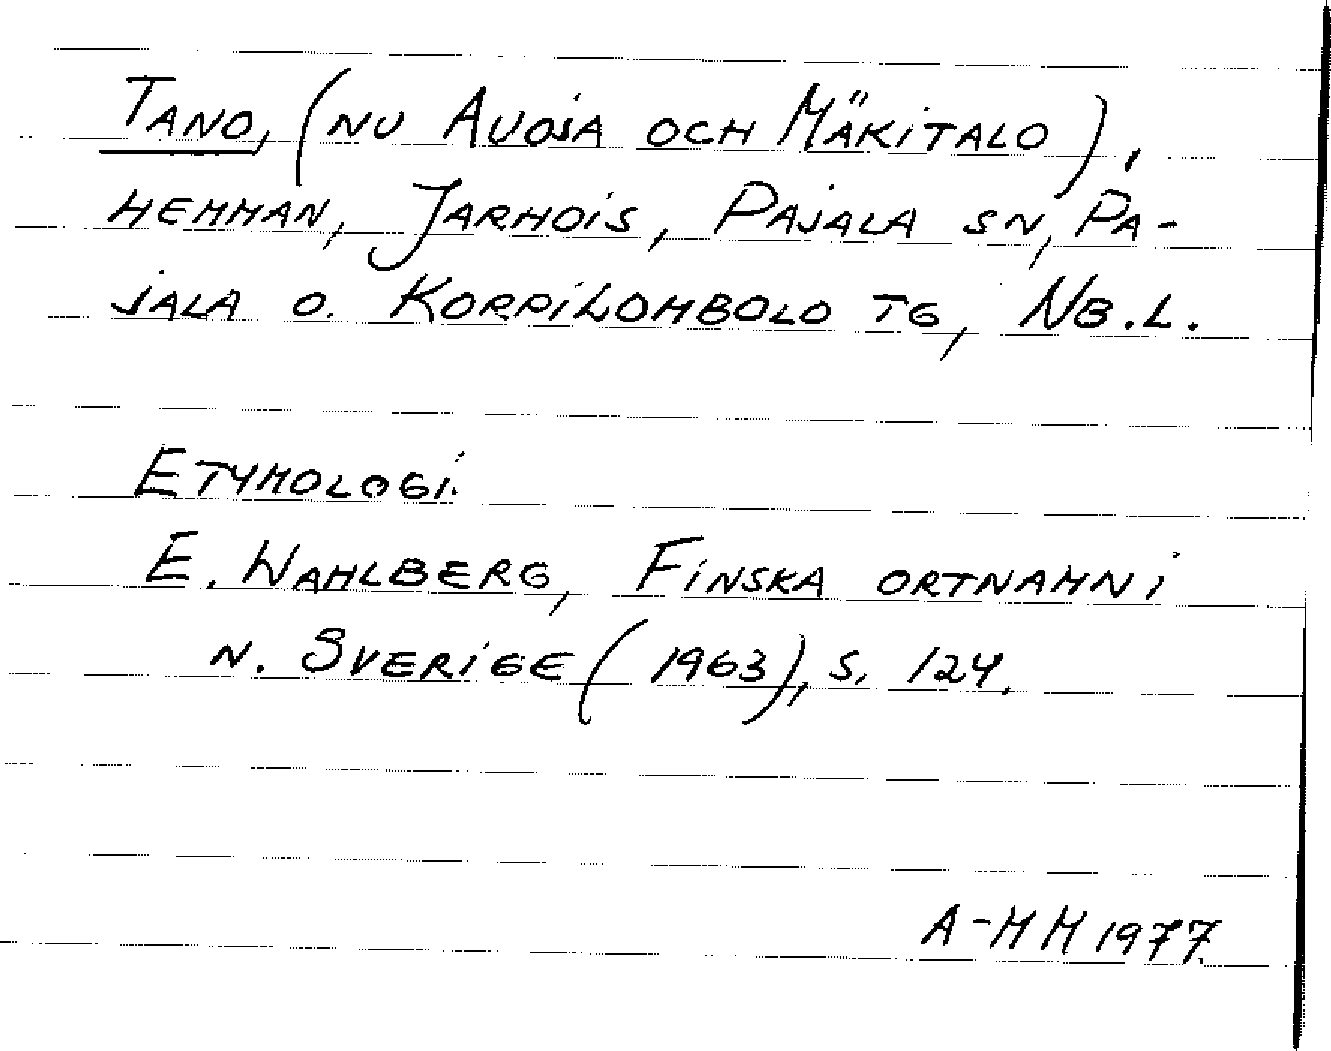 TANO, (NU AUOJA OCH MÄKITALO),
HEMMAN, JARHOIS, PAJALA SN, PA-
JALA O. KORPILOMBOLO TG, NB.L.
ETYMOLOGI.
E. WAHLBERG, FINSKA ORTNAMN I
N. SVERIGE (1963), S. 124.
A-MM 1977.